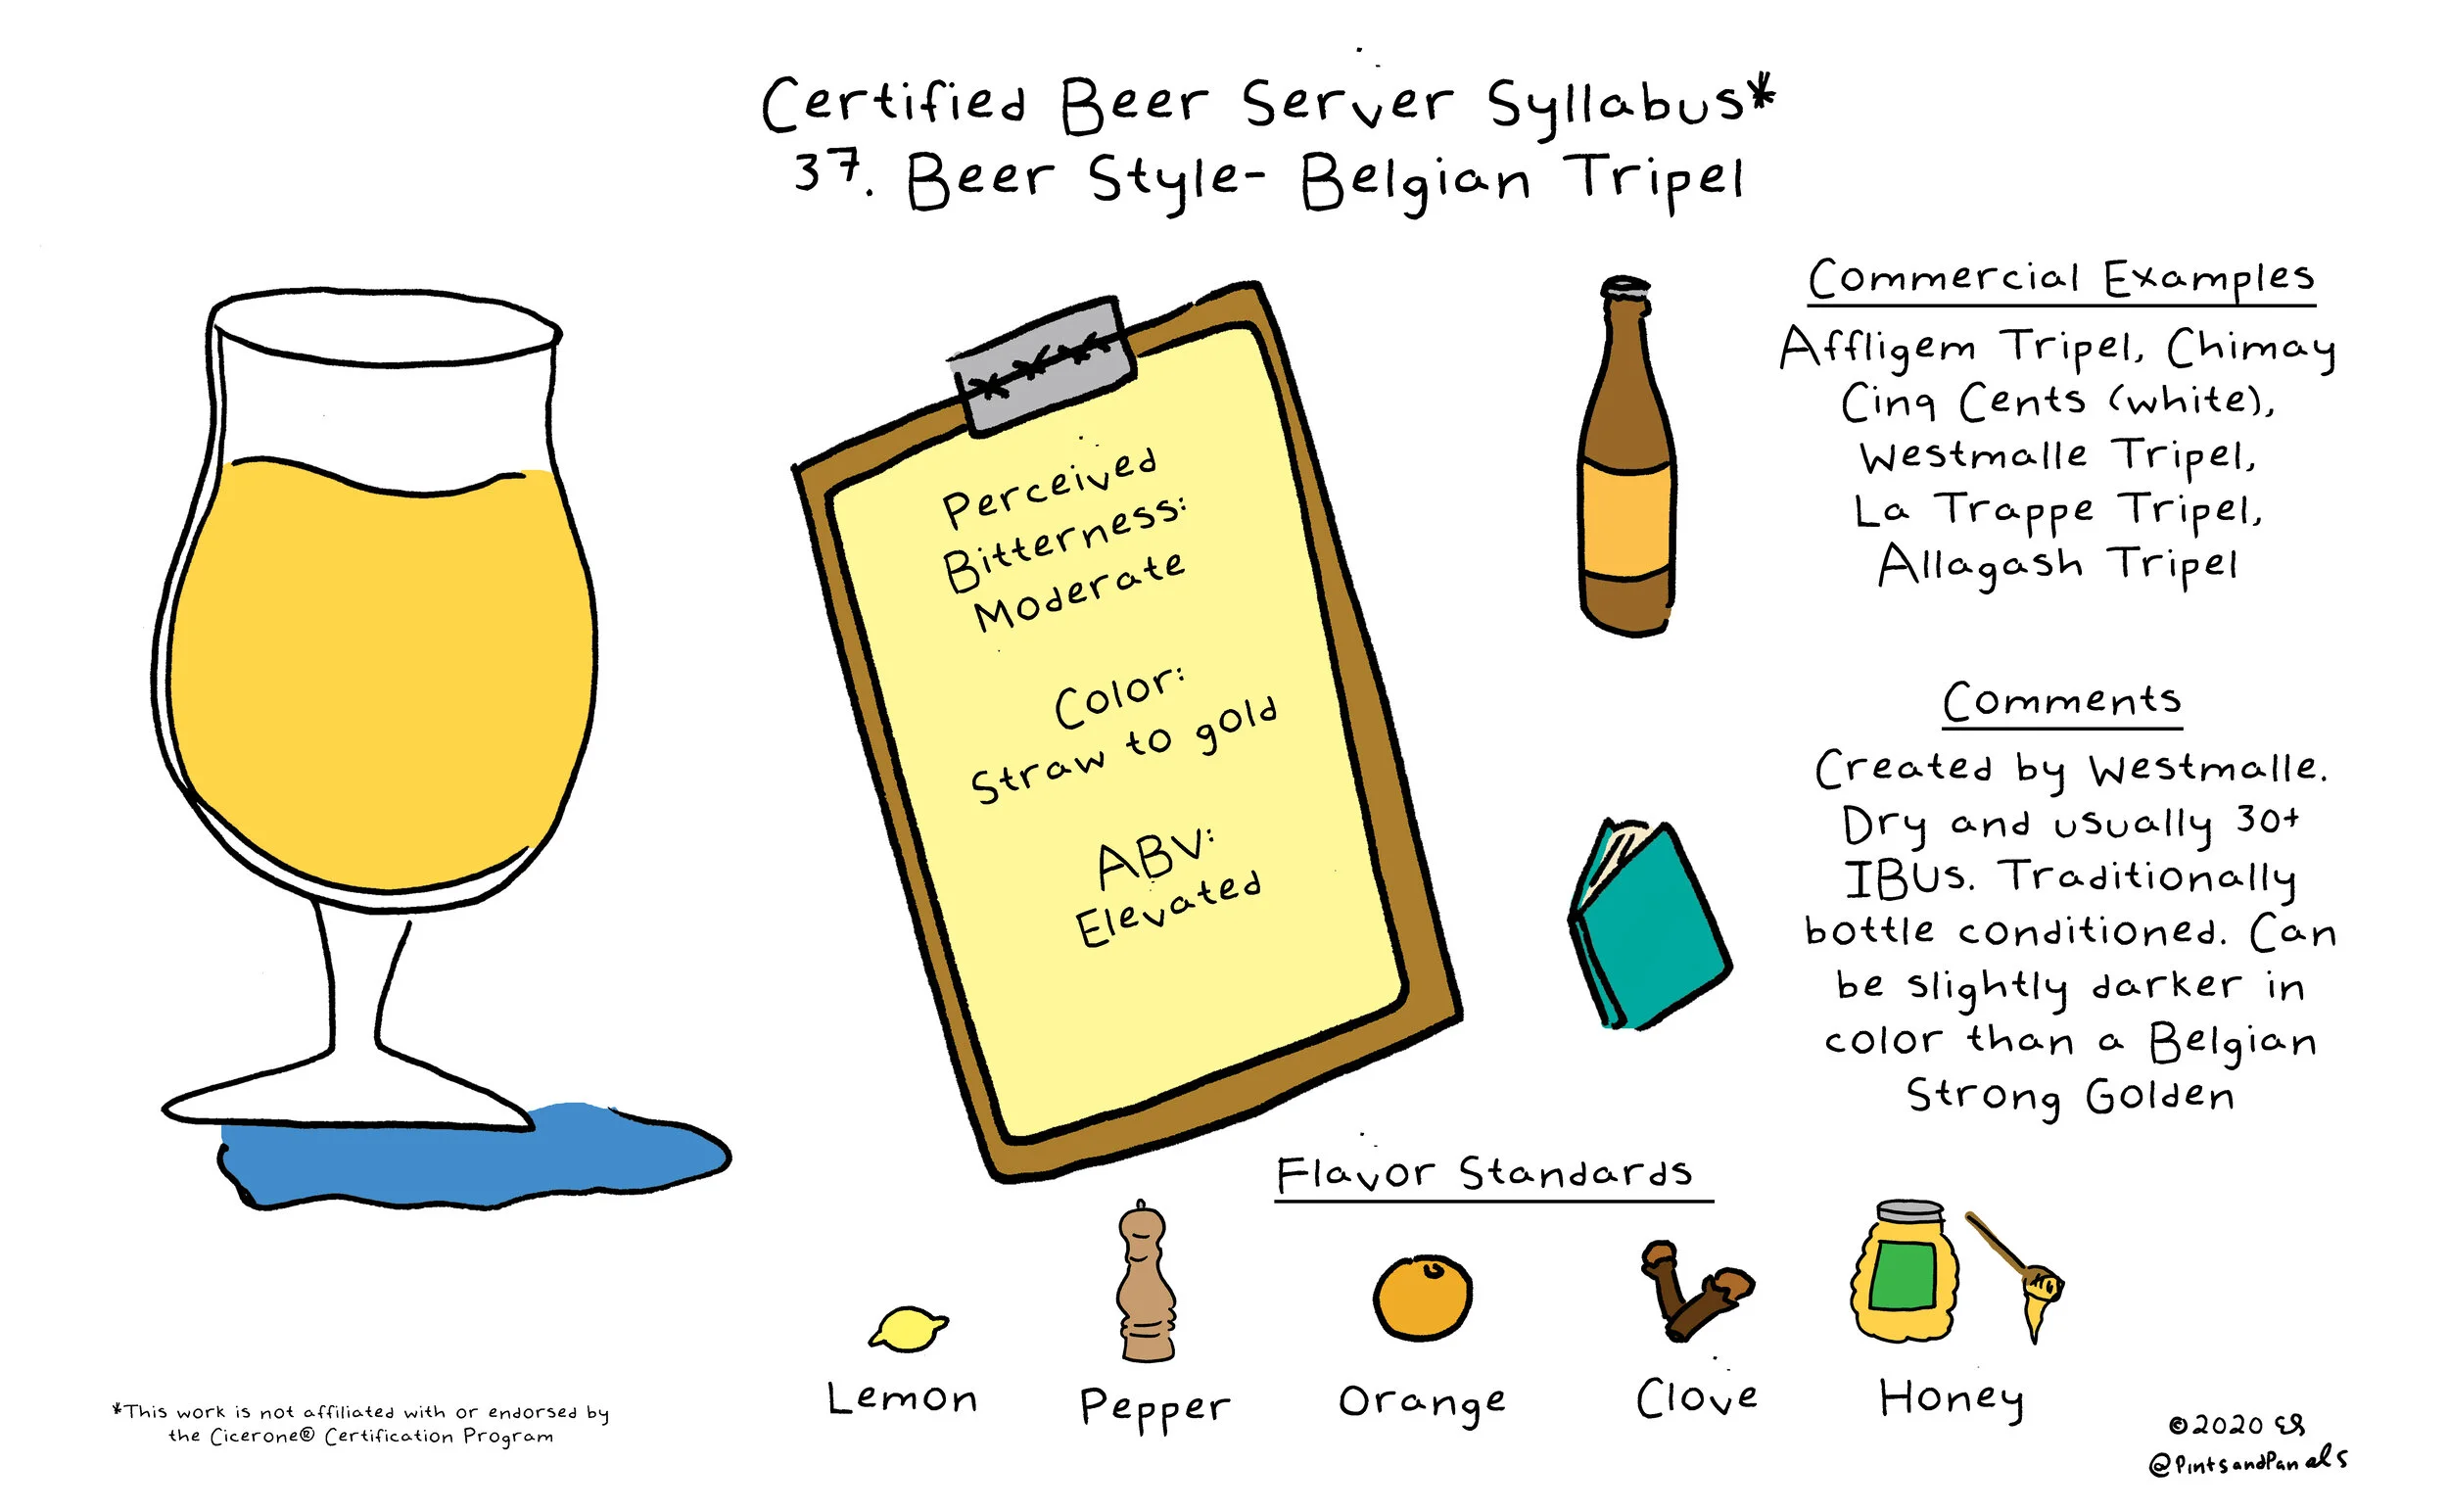 Certified Beer Server Syllabus*
37. Beer Style- Belgian Tripel
Perceived
Bitterness:
Moderate
Color:
Straw to gold
ABV:
Elevated
Commercial Examples
Affligem Tripel, Chimay
Cinq Cents (white),
Westmalle Tripel,
La Trappe Tripel,
Allagash Tripel
Comments
Created by Westmalle.
Dry and usually 30+
IBUs. Traditionally
bottle conditioned. Can
be slightly darker in
color than a Belgian
Strong Golden
Flavor Standards
Lemon
Pepper
Orange
Clove
Honey
*This work is not affiliated with or endorsed by
the Cicerone® Certification Program
©2020 ES
@PintsandPanels